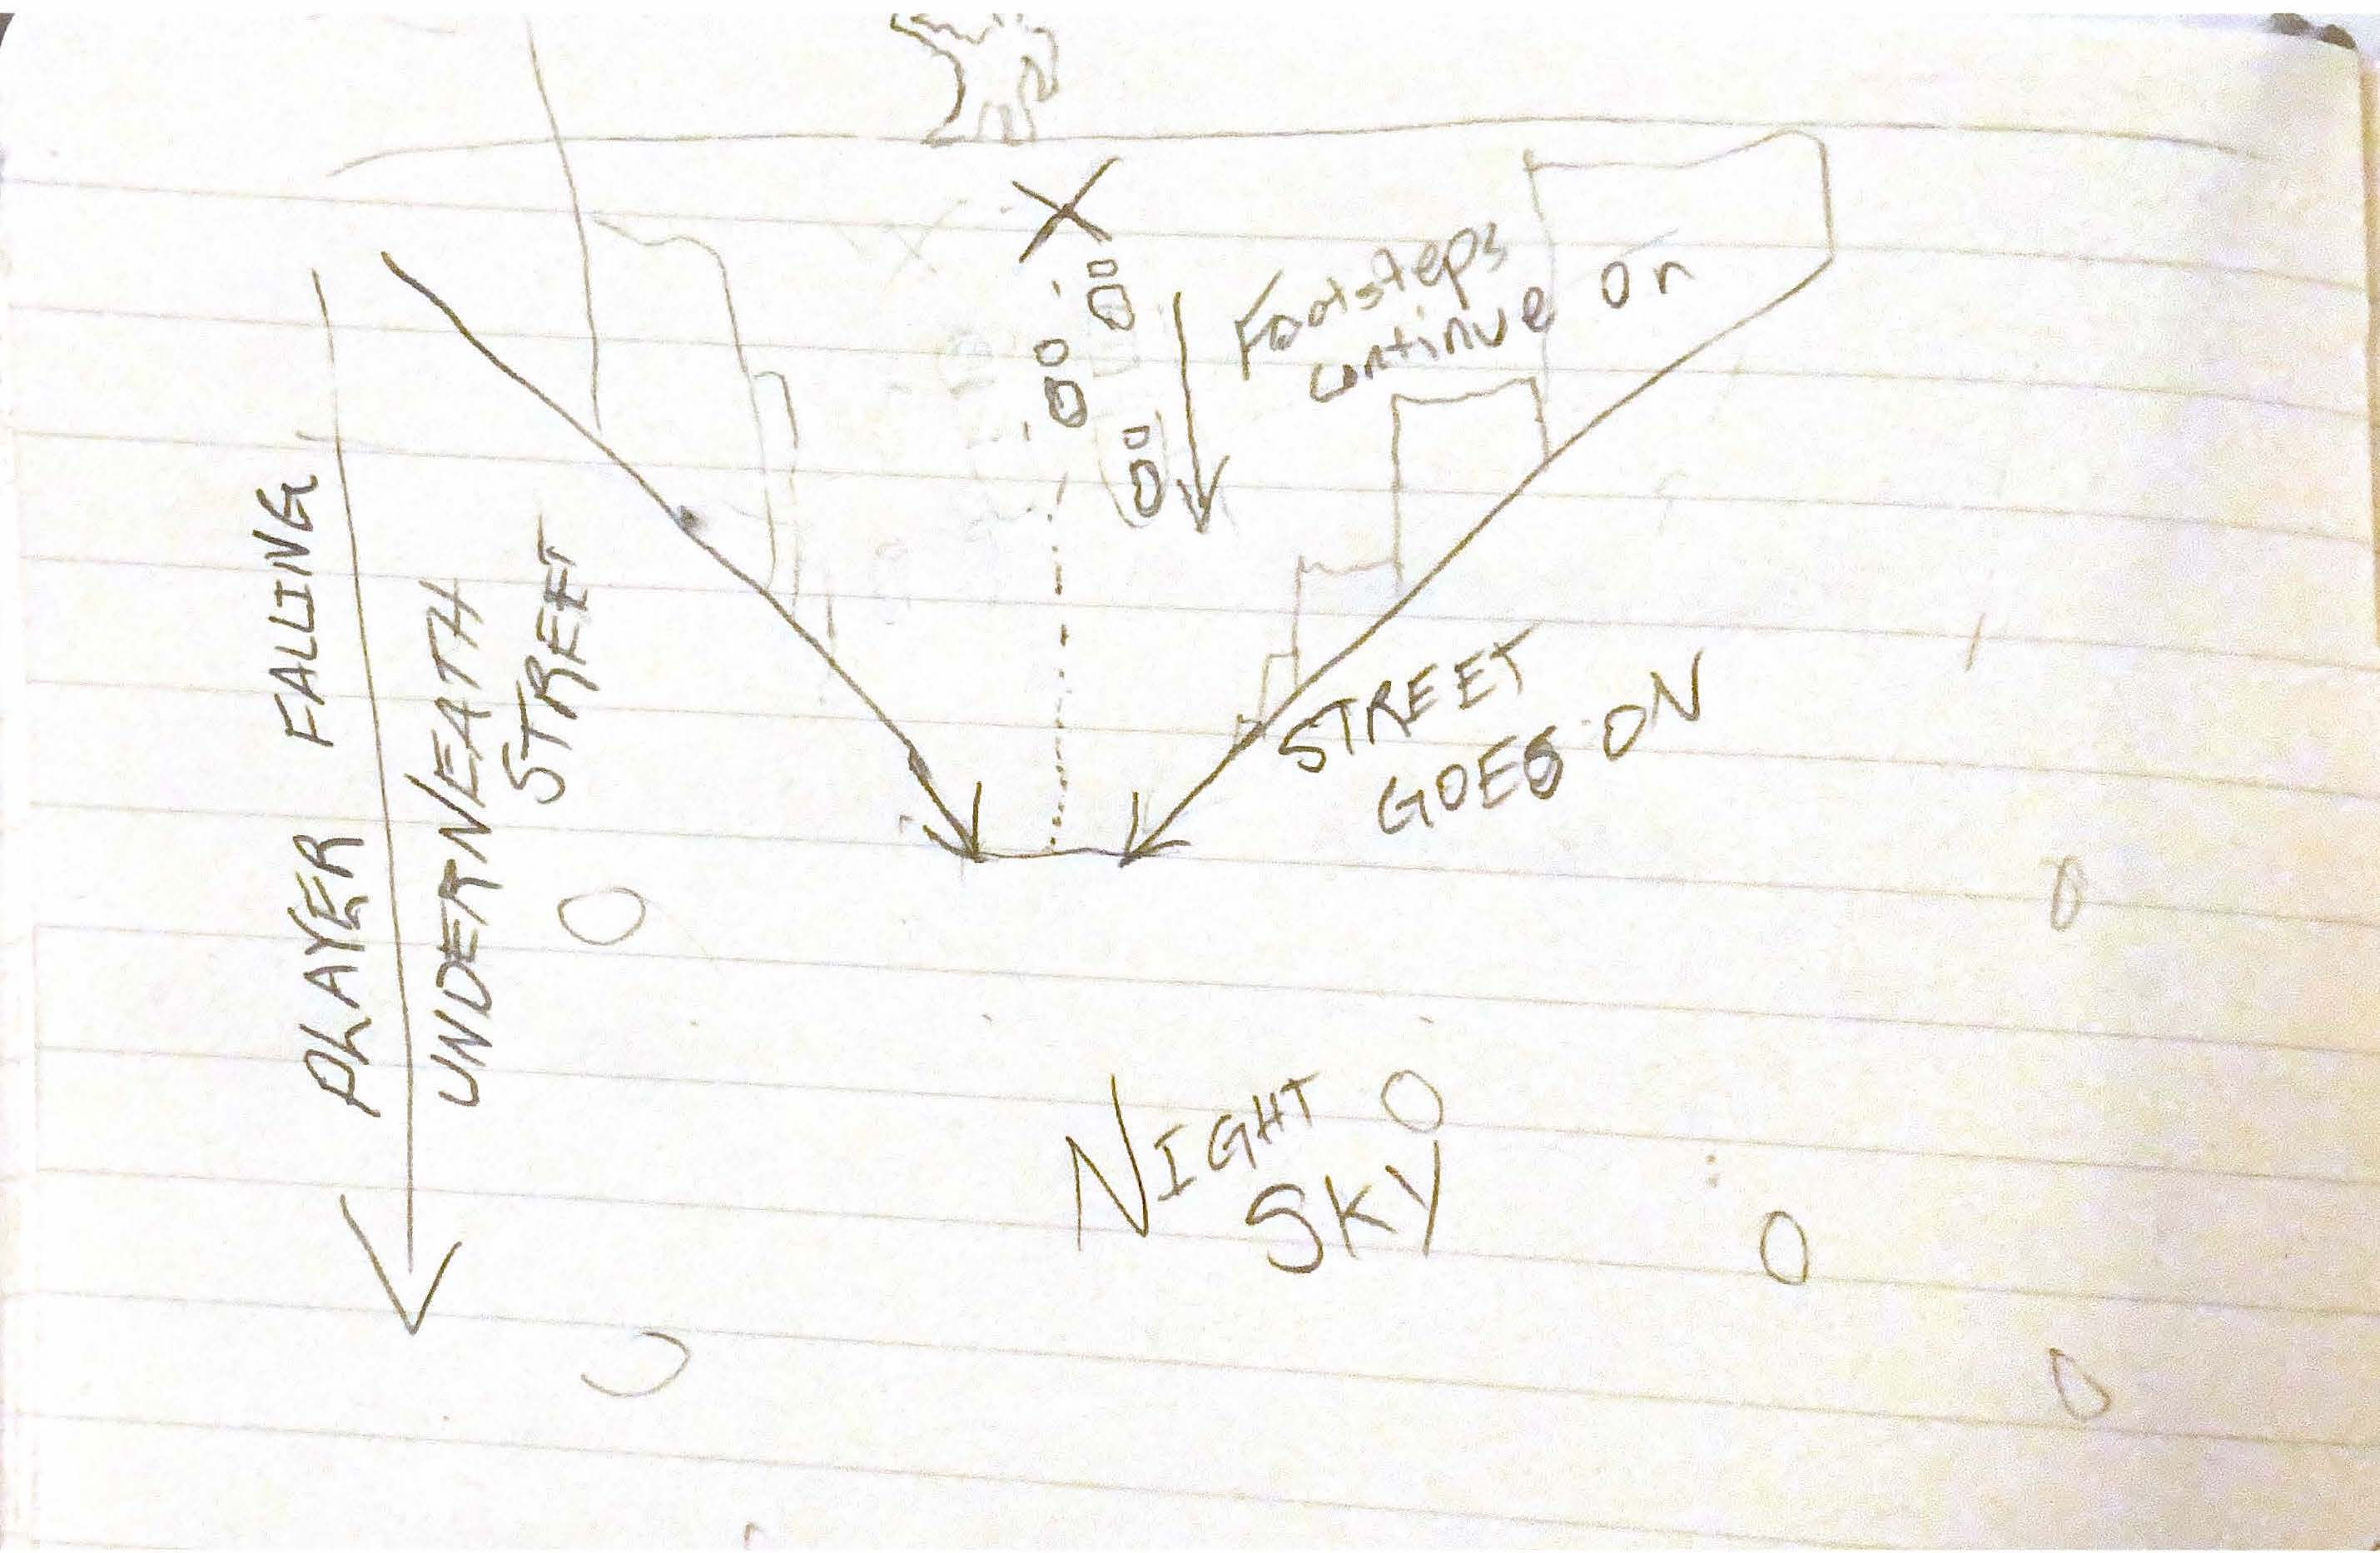 Footsteps
continue on
PLAYER FALLING
UNDERNEATH
STREET
STREET
GOES ON
NIGHT
SKY